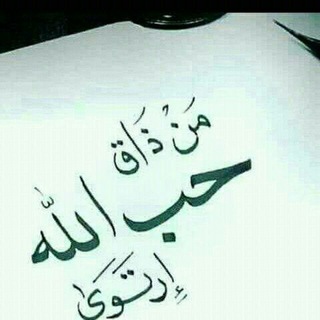 مَنْ ذَاق
حب الله
إرتَوَى